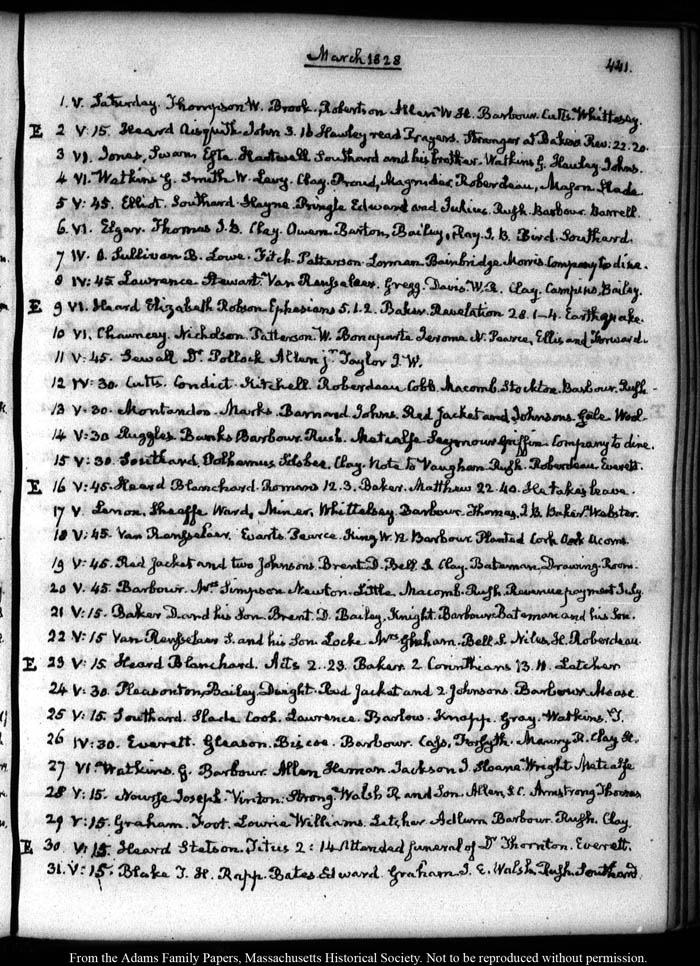 March 1828
441.
1. V. Saturday. Thompson W. Brook. Robertson Allen W H. Barbour. Cutts. Whittlesey.
E 2 V: 15. Heard Asquith John 3. 16 Hawley read Prayers. Stranger at Bakers Rev: 22. 20.
3 VI. Jones, Swann, Hartwell Southard and his brother. Watkins G. Hawley Johns.
4 VI. Watkins G. Smith W. Levy. Clay. Proud, Magruder. Roberdeau, Mason. Slade.
5 V: 45. Elliot. Southard. Hayne. Pringle Edward and Julius. Rush. Barbour. Barrell.
6. VI. Elgar. Thomas I. B. Clay. Owen. Barton, Bailey, Ray. I. B. Bird. Southard.
7 IV. O. Sullivan B. Lowe. Fitch. Patterson. Lorman Bainbridge Morris. Company to dine.
8 IV: 45 Lawrence. Stewart. Van Rensselaer. Gregg. Davis. W. R. Clay. Bailey.
E 9 VI. Heard Elizabeth Robson Ephesians 5. 1. 2. Baker. Revelation 1–4. Earthquake.
10 VI. Chauncey. Nicholson. Patterson W. Bonaparte Jerome N. Pearce, Ellis and
11 V: 45. Sewall Dr. Pollock Allen jr. Taylor J. W.
12 IV: 30. Cutts. Condict. Mitchell. Roberdeau Cobb. Macomb. Stockton. Barbour. Rush.
13 V. 30. Montandon. Marks. Barnard Johns. Red Jacket and Johnsons. Gale Wool.
14 V: 30 Ruggles. Banks. Barbour. Rush. Metcalfe Seymour Griffin. Company to dine.
15 V: 30. Southard. Clay. Note to Vaughan. Rush. Roberdeau. Everett.
E 16 V: 45. Heard Blanchard. Romans 12. 3. Baker. Matthew 22. 40. He takes leave.
17 V. Lenox, Sheaffe Ward, Miner, Whittlesey Barbour. Thomas, I. B. Baker. Webster.
18 V: 45. Van Rensselaer. Evarts. Pearce. King W. Barbour Planted Cork Oak Acorns.
19 V: 45. Red Jacket and two Johnsons. Brent D. Bell S. Clay. Bateman. Drawing Room.
20 V. 45. Barbour. Mrs. Simpson Newton. Little. Macomb. Rush, Revenue payment July.
21 V: 15. Baker D. and his Son. Brent. D. Bailey. Knight. Barbour. Bateman and his Son.
22 V: 15 Van Rensselaer S. and his Son. Locke Mrs. Graham. Bell S. Niles, H. Roberdeau.
E 23 V: 15 Heard Blanchard. Acts 2. 23. Baker. 2 Corinthians 13. 11. Letcher
24 V: 30. Pleasonton, Bailey. Dwight. Red Jacket and 2 Johnsons. Barbour. Mease.
25 V: 15. Southard. Slade Cook. Lawrence. Barlow. Knapp. Gray. Watkins. T.
26 IV: 30. Everett. Gleason. Biscoe. Barbour. Cass, Forsyth. Maury R. Clay H.
27 VI. Watkins. G. Barbour. Allen Heman. Jackson J. Sloane Wright. Metcalfe
28 V: 15. Nourse Joseph. Vinton. Strong. Walsh R. and Son. Allen, S. C. Armstrong Thomas
29 V: 15. Graham. Foot. Lowrie Williams. Letcher Adlum Barbour. Rush. Clay.
E 30. V. 15. Heard Stetson. Titus 2: 14 Attended funeral of Dr. Thornton. Everett.
31. V: 15. Blake T. H. Rapp. Bates Edward Graham J. E. Walsh. Rush. Southard.
From the Adams Family Papers, Massachusetts Historical Society. Not to be reproduced without permission.